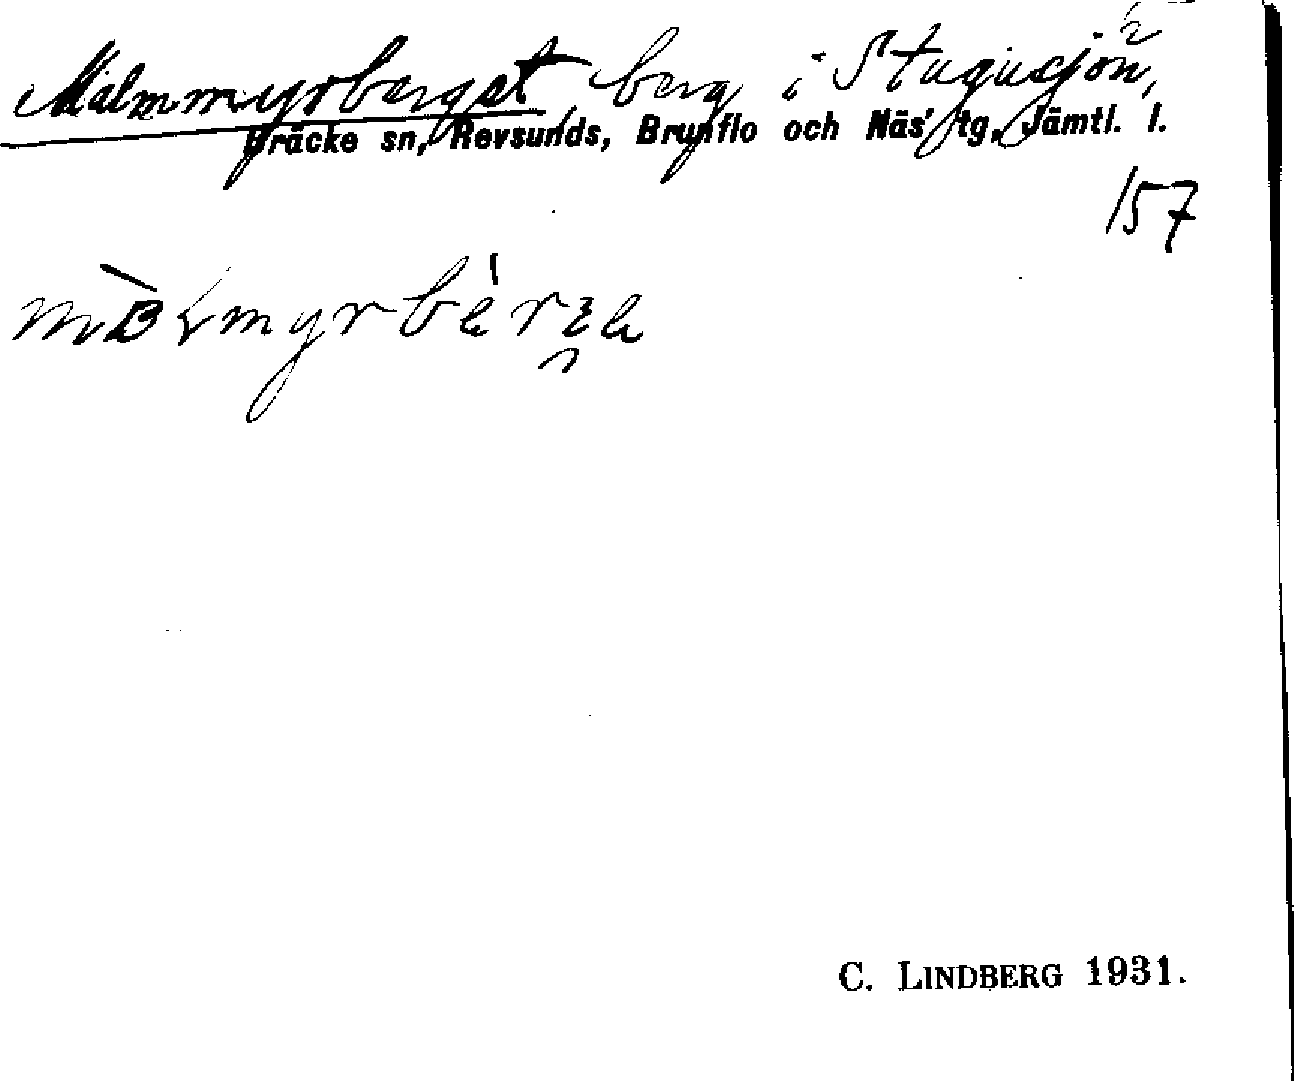 Malmmyrberget berg i Stugusjön,
Bräcke sn, Revsunds, Brunflo och Näs' tg, Jämtl. l.
157
C. LINDBERG 1931.